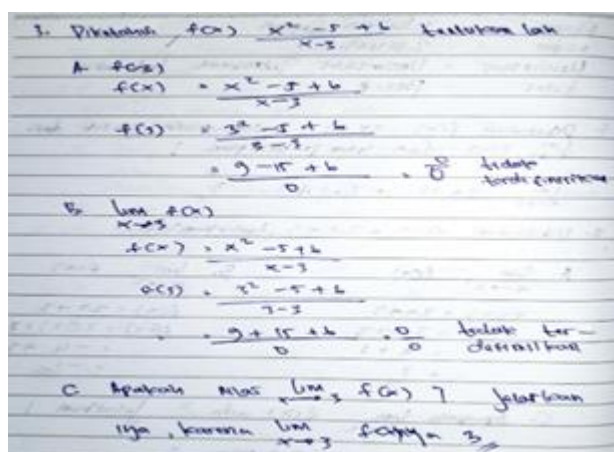 3. Diketahui f(x) x² - 5 + 6 / x - 3 tentukan lah
A. f(3)
f(x) = x² - 5 + 6 / x - 3
f(3) = 3² - 5 + 6 / 3 - 3
= 9 - 15 + 6 / 0 = 0/0 tidak terdefinisikan
B. lim x→3 f(x)
f(x) = x² - 5 + 6 / x - 3
f(3) = 3² - 5 + 6 / 3 - 3
= 9 + 15 + 6 / 0 = 0/0 tidak ter-
definisikan
C Apakah nilai lim x→3 f(x) ? jelaskan
iya, karena lim x→3 3//